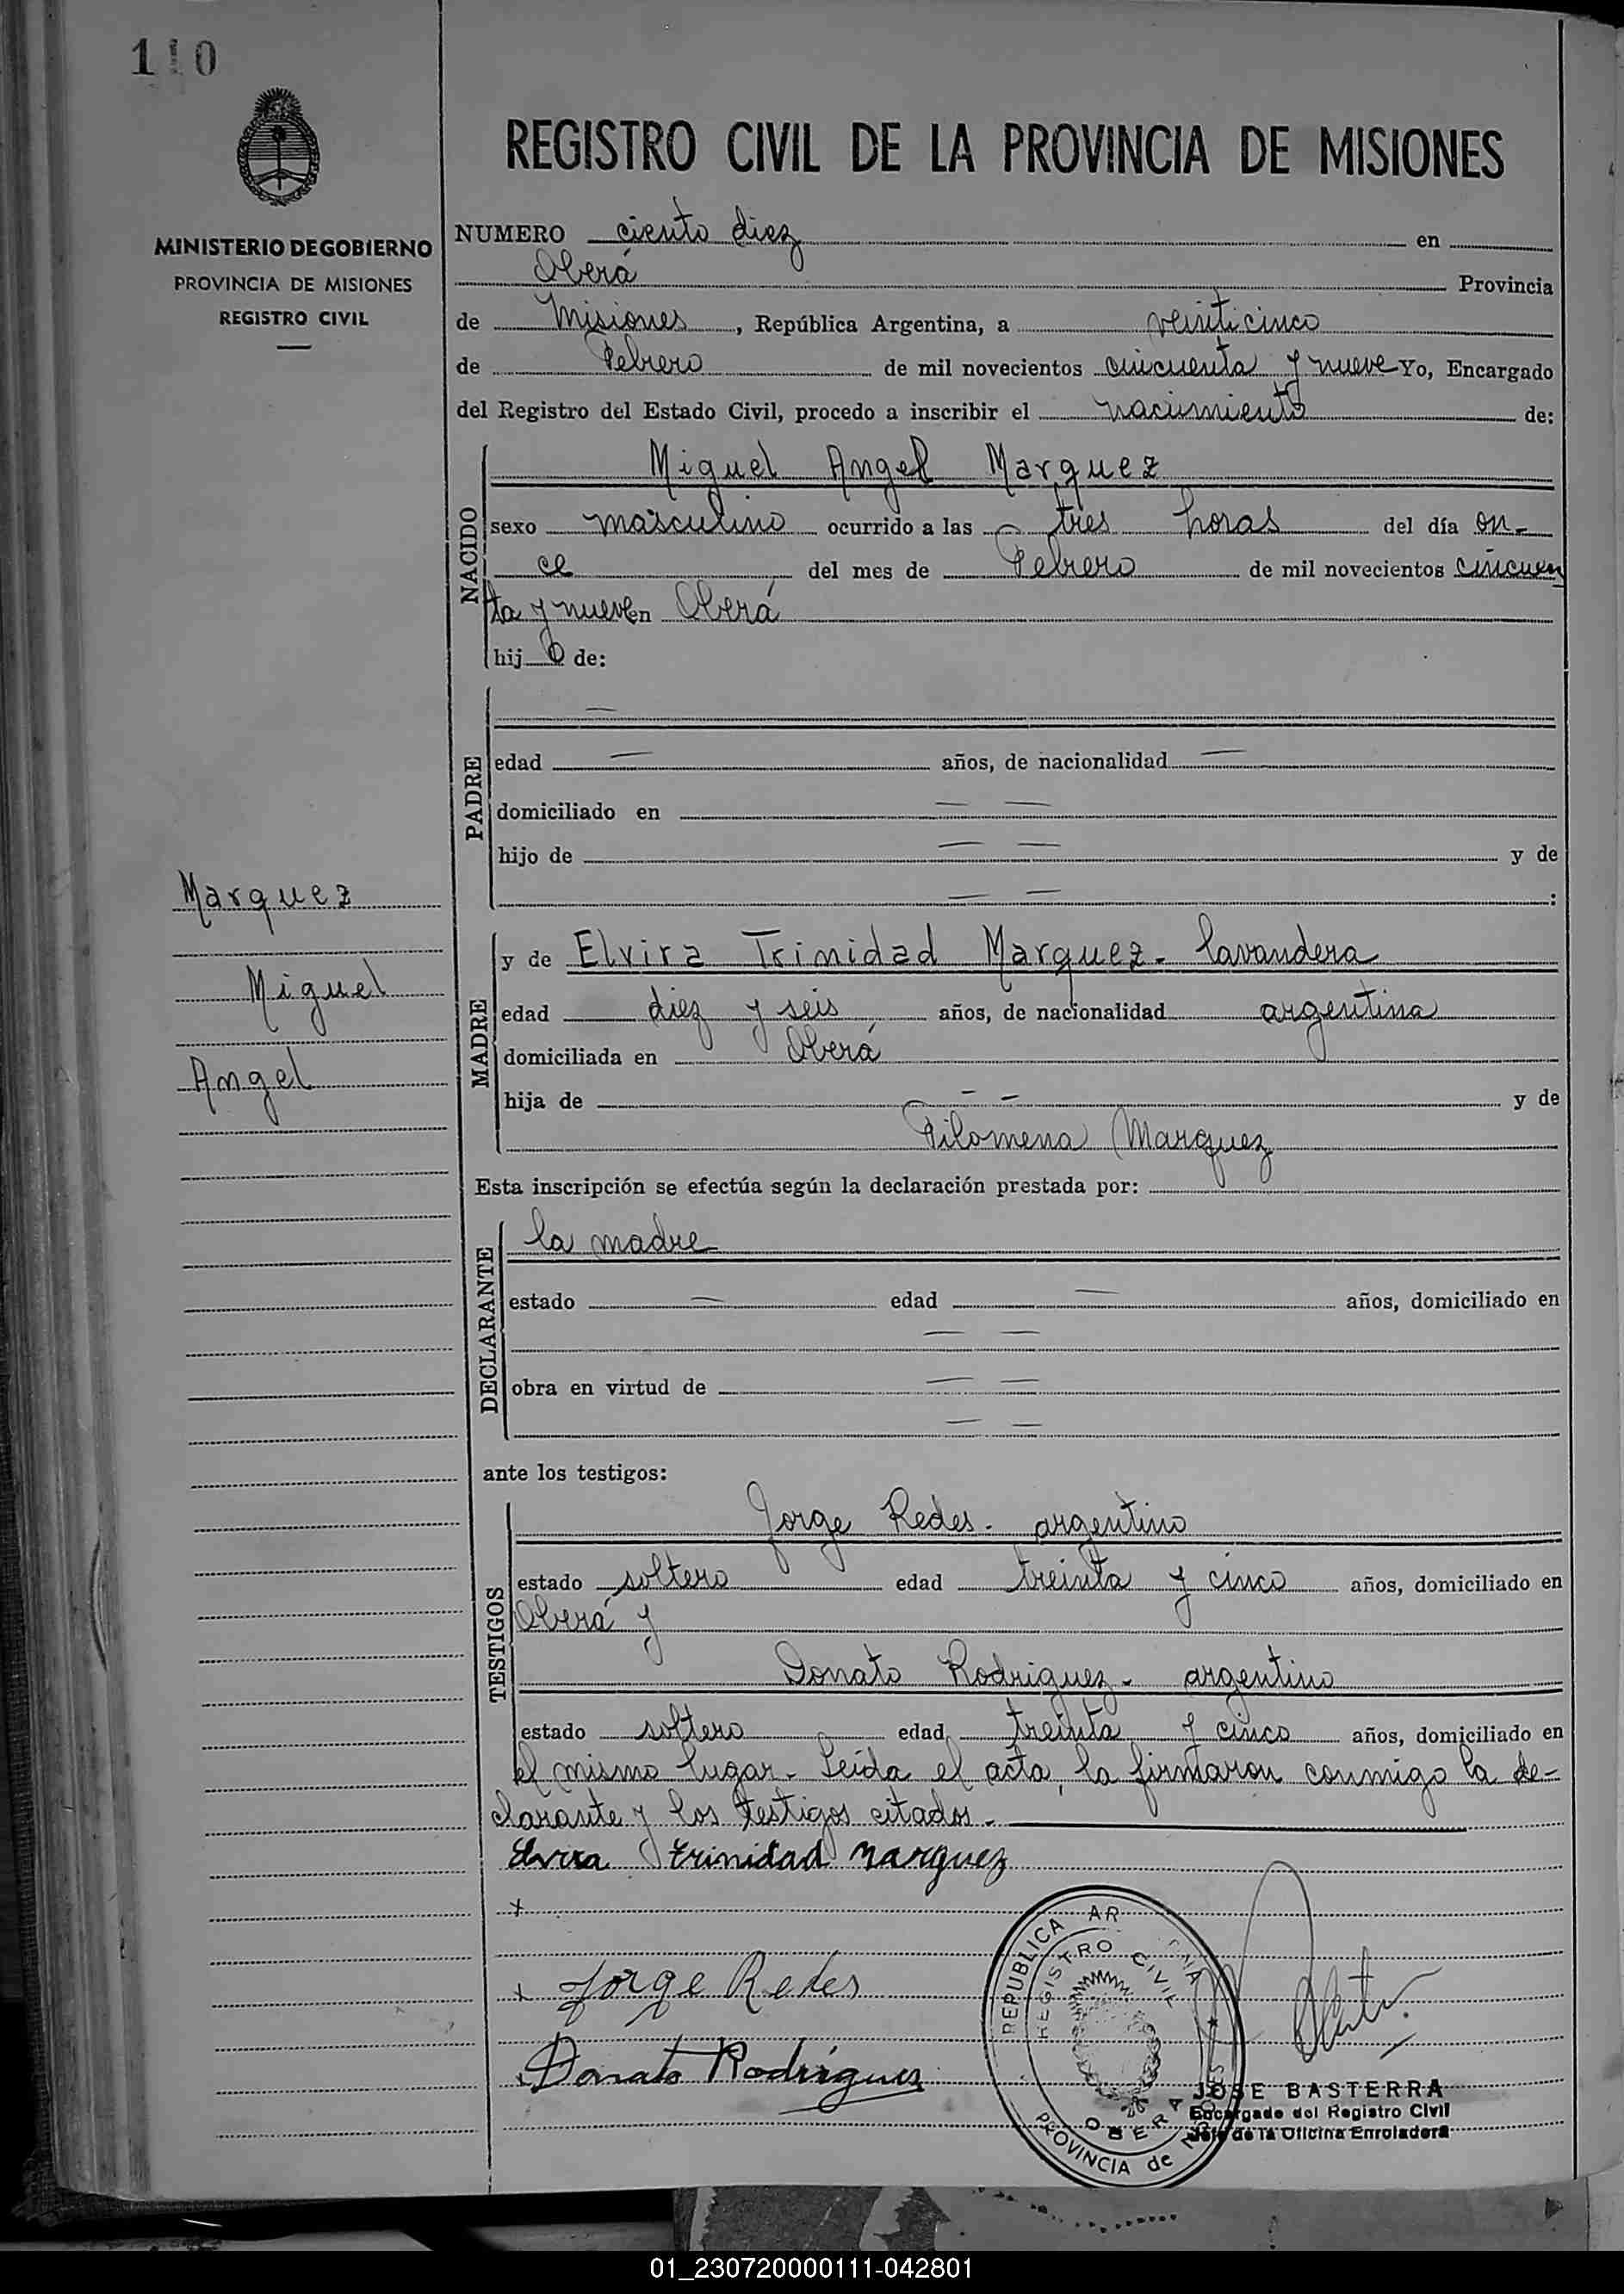 110
MINISTERIO DE GOBIERNO
PROVINCIA DE MISIONES
REGISTRO CIVIL
Marquez
Miguel
Angel
REGISTRO CIVIL DE LA PROVINCIA DE MISIONES
NUMERO ciento diez en
Oberá Provincia
de Misiones, República Argentina, a veinticinco
de Febrero de mil novecientos cincuenta y nueve Yo, Encargado
del Registro del Estado Civil, procedo a inscribir el nacimiento de:
NACIDO
Miguel Angel Marquez
sexo masculino ocurrido a las tres horas del día on-
ce del mes de Febrero de mil novecientos cincuen
ta y nueve en Oberá
hijo de:
PADRE
—
edad — años, de nacionalidad —
domiciliado en — —
hijo de — — y de
— — :
MADRE
y de Elvira Trinidad Marquez - lavandera
edad diez y seis años, de nacionalidad argentina
domiciliada en Oberá
hija de — — y de
Filomena Marquez
Esta inscripción se efectúa según la declaración prestada por:
DECLARANTE
la madre
estado — edad — años, domiciliado en
— —
obra en virtud de — —
— —
ante los testigos:
TESTIGOS
Jorge Redes - argentino
estado soltero edad treinta y cinco años, domiciliado en
Oberá y
Donato Rodriguez - argentino
estado soltero edad treinta y cinco años, domiciliado en
el mismo lugar - Leída el acta, la firmaron conmigo la de-
clarante y los testigos citados. -
Elvira trinidad Marquez
+
+ Jorge Redes
Donato Rodriguez
REPUBLICA AR NA
REGISTRO CIVIL
OBERA
PROVINCIA de MISIONES
JOSE BASTERRA
Encargado del Registro Civil
Jefe de la Oficina Enroladora
01_230720000111-042801